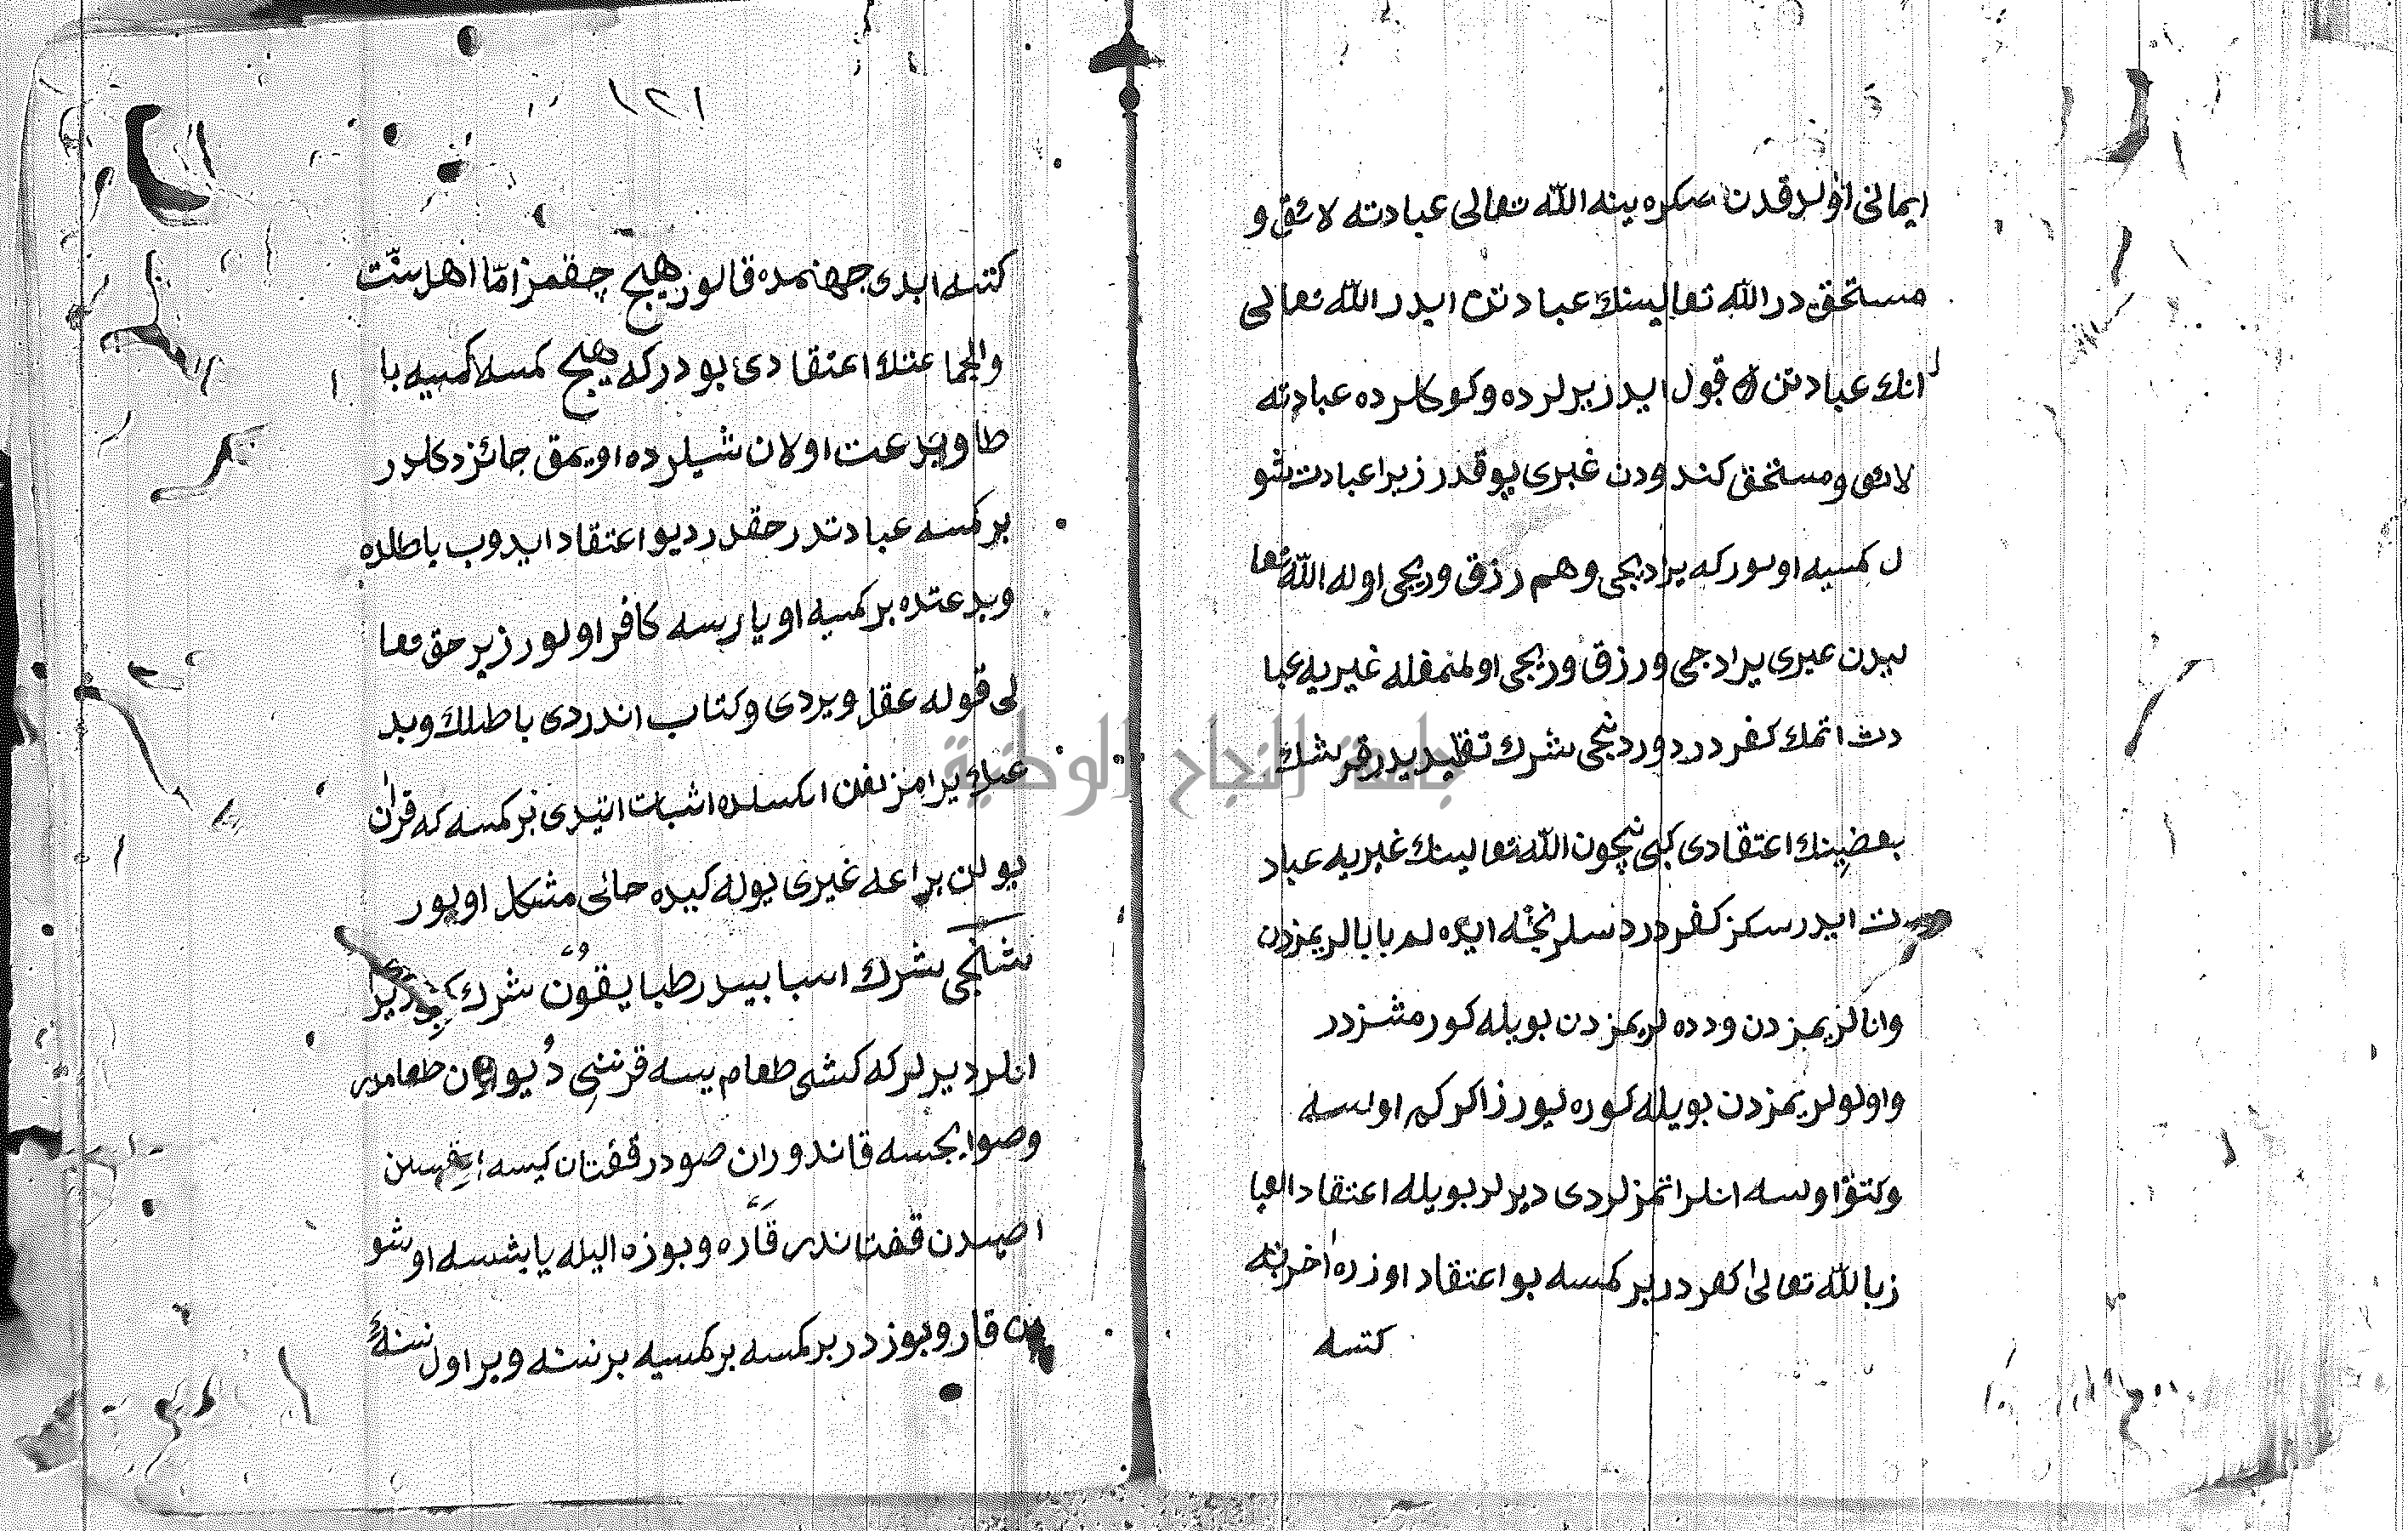 ايمانى اولدقدن سكره ينه الله تعالى عبادته لائق و
مستحق در الله تعالينك عبادتن ايدر الله تعالى
انك عبادتن قبول ايدر زيرلرده وكوكلرده عبادته
لائق ومستحق كندودن غيرى يوقدر زيرا عبادت شو
ل كمسيه اولور كه يراديجى وهم رزق وريجى اوله الله تعا
ليدن غيرى يرادجى ورزق وريجى اولمنمغله غيريه عبا
دت اتمك كفر در دوردنجى شرك تقليديدر شرك
بعضينك اعتقادى كبى نيچون الله تعالينك غيريه عباد
ت ايدرسكز كفر در دسلر نجه ايده لم بابالريمزدن
وانالريمزدن ودده لريمزدن بويله كورمشزدر
واولولريمزدن بويله كوره ليورز اكر كم اولسه
وكتو اولسه انلر اتمزلردى ديرلر بويله اعتقاد العيا
ز بالله تعالى كفر در بر كمسه بو اعتقاد اوزره اخرته
كتسه
١٢١
كتسه ابدى جهنمده قالور هيچ چقمز اما اهل سنت
والجماعتك اعتقادى بودر كه هيچ كمسه كمسيه با
طل وبدعت اولان شيلرده اويمق جائز دكلدر
بر كمسه عبادتدر حقدر ديو اعتقاد ايدوب باطلده
وبدعتده بر كمسيه اويارسه كافر اولور زير حق تعا
لى قوله عقل ويردى وكتاب اندردى باطلك وبد
عتك يرامز اكسلده اثبات ايتدى بر كمسه كه قران
يولن براعه غيرى يوله كيده حالى مشكل اولور
بشنجى شرك اسبابيدر طبايقون شرك كبيدر
انلر ديرلر كه كشى طعام يسه قرننى دويوران طعامدر
وصو ايجسه قاندوران صودر قفتان كيسه
اصيدن قفتاندر قاره وبوزه اليله يابشسه اوشو
دن قار وبوزدر بر كمسه بر كمسيه بر نسنه وير اول نسنه